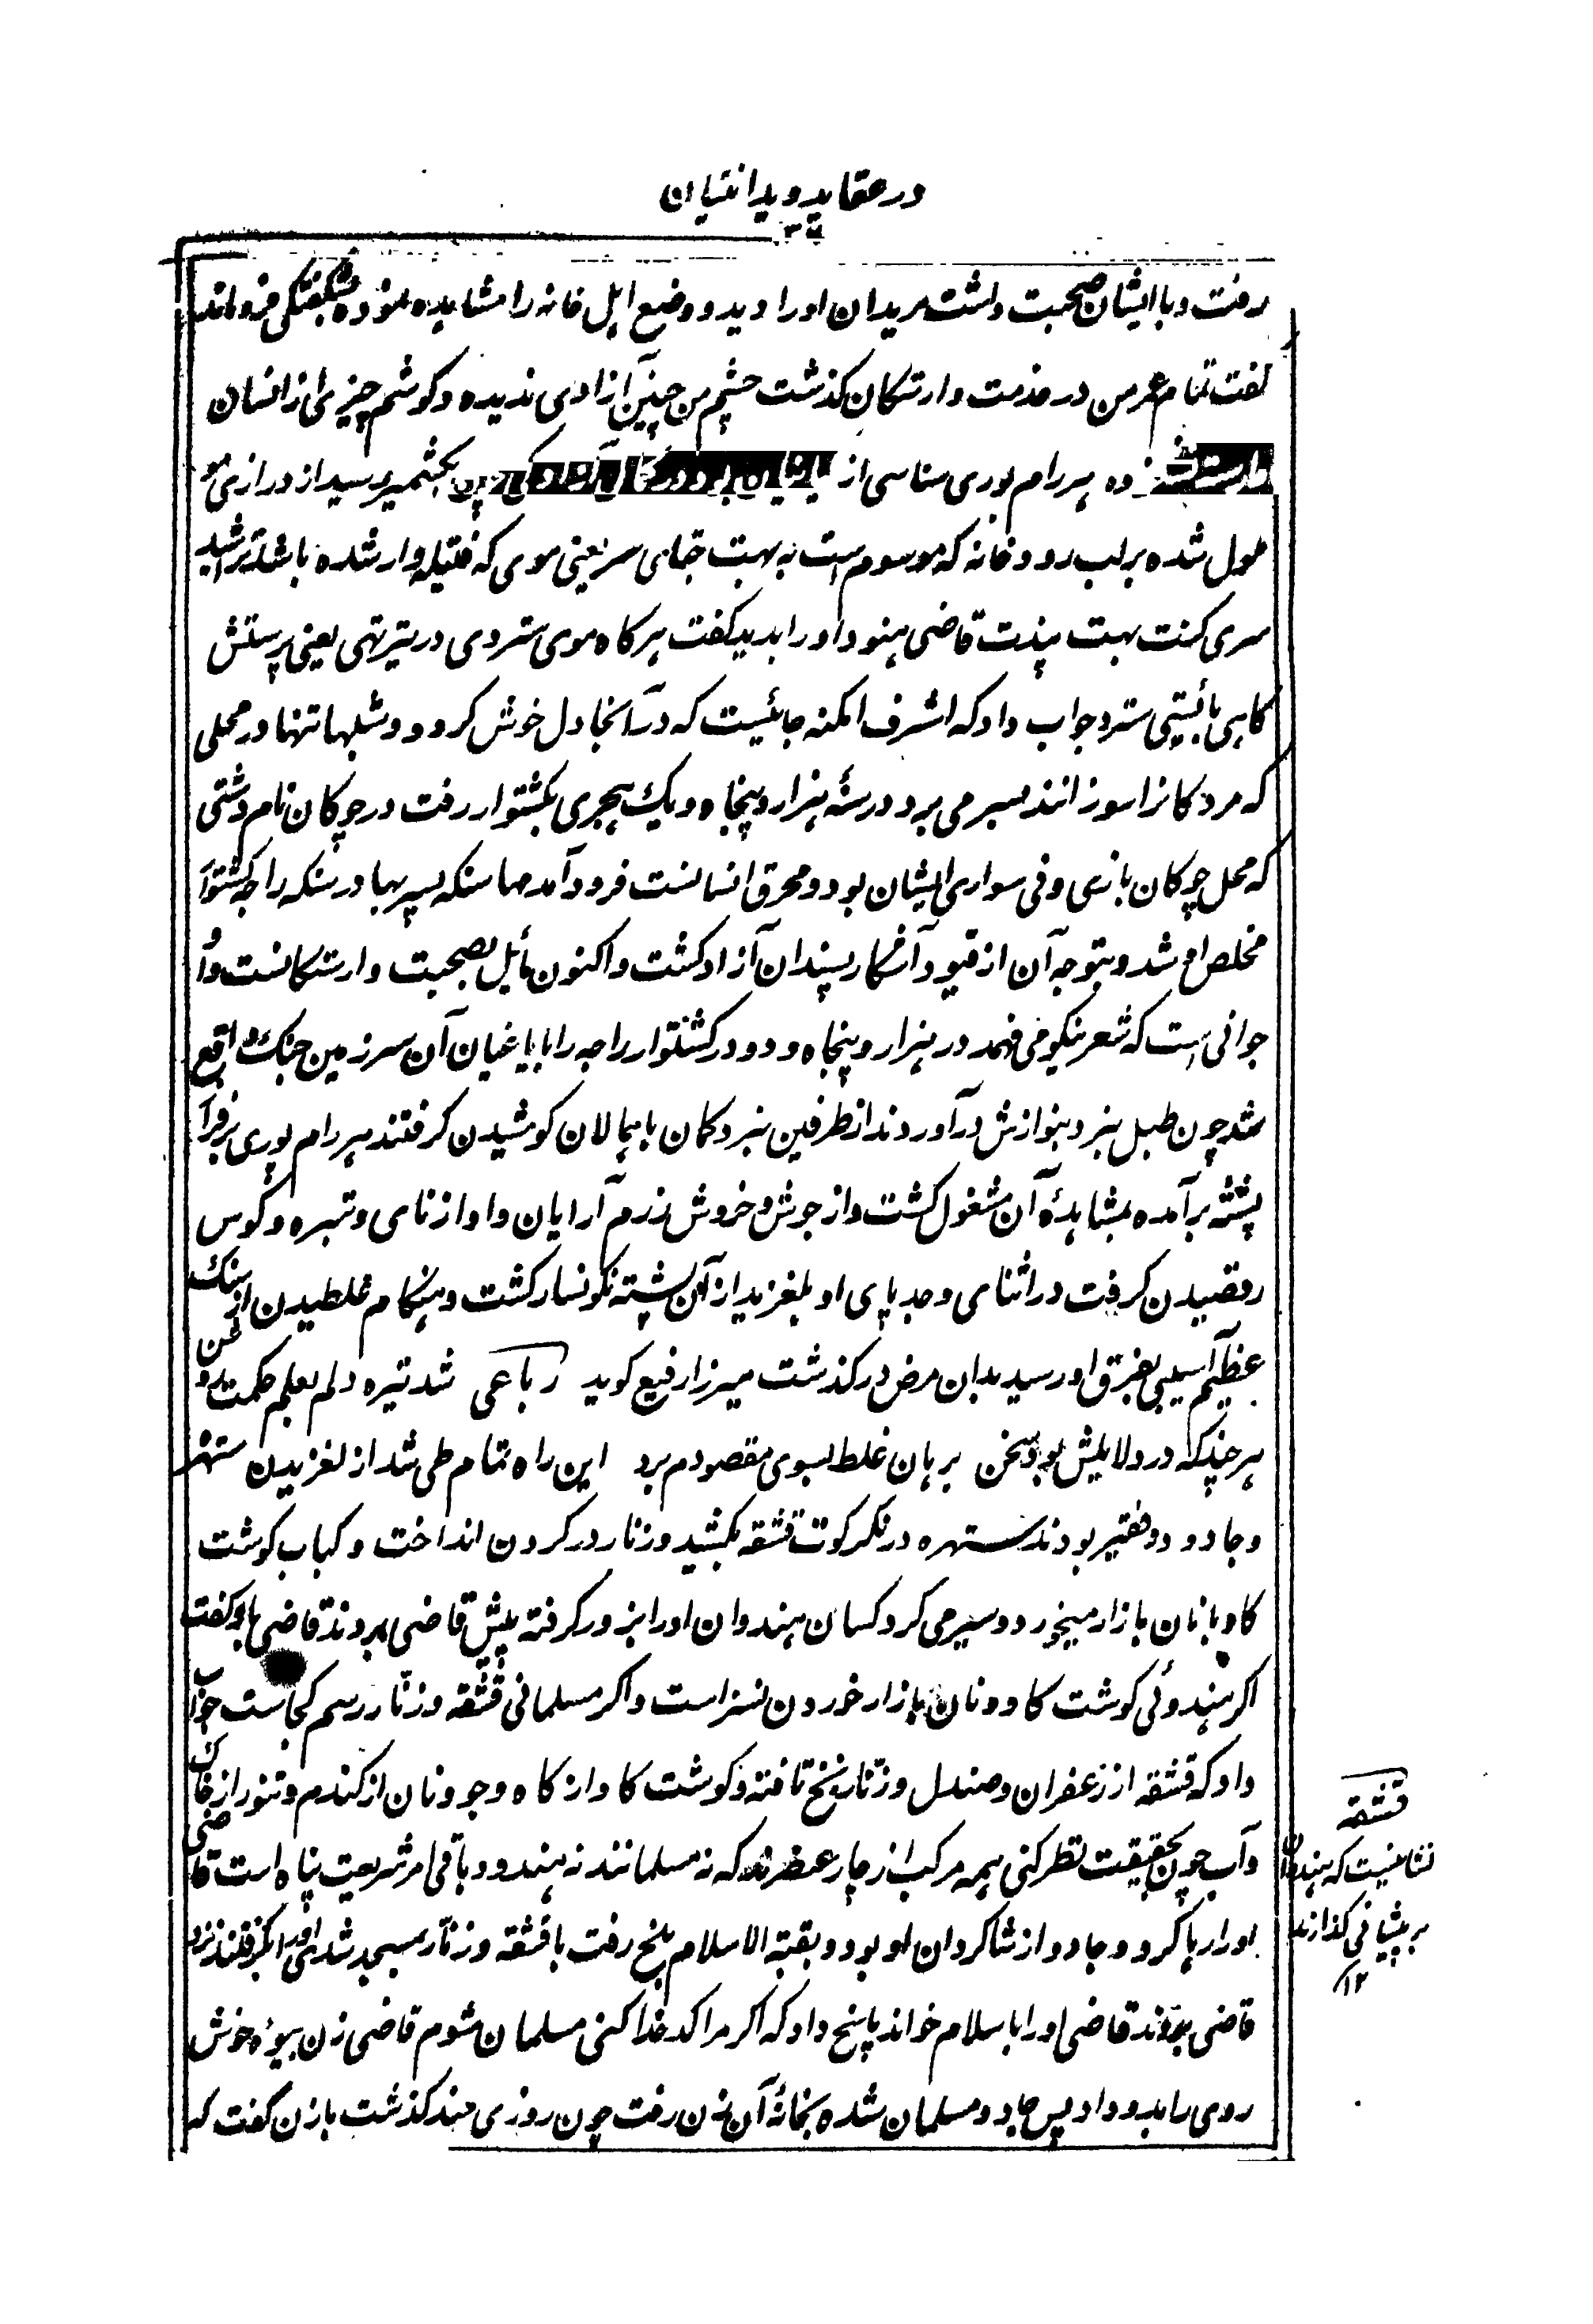 در عقاید ویدانتیان
رفت و با ایشان صحبت داشت مریدان او را دید و وضع اهل خانه را مشاهده نموده بشگفتگی فروماند
گفت تمام عمر من در خدمت وارستگان گذشت چشم من چنین آزادی ندیده و گوشم چیزی از انسان
هررام پوری سناسی از بکشمیر رسید از درازی
طول شده بر لب رودخانه که موسوم است به بهت جتهای سر یعنی موی که فتیله وار شده باشد تراشید
سری کنت بهت پندت قاضی هنود او را بدید گفت هرگاه موی ستردی در تیرتهی یعنی پرستش
گاهی بایستی سترد جواب داد که اشرف امکنه جائیست که در آنجا دل خوش کرد و شبها تنها در محلی
که مردگانرا سوزانند بسر می برد در سنهٔ هزار و پنجاه و یک هجری بکشتوار رفت در چوگان نام دشتی
که محل چوگان بازی و فی سواری ایشان بود و محرق انسانست فرود آمد مها سنکه پسر بهادر سنکه راجه کشتوار
مخلص او شد و بتوجه آن از قیود آشکار پندان آزاد گشت و اکنون مائل بصحبت وارستگانست و او
جوانی است که شعر نیکو می فهمد در هزار و پنجاه و دو در کشتوار راجه را با یاغیان آن سرزمین جنگ واقع
شد چون طبل نبرد بنوازش درآوردند از طرفین نبردگمان با همالان کوشیدن گرفتند هررام پوری بر فراز
پشته برآمده بمشاهدهٔ آن مشغول گشت و از جوش و خروش رزم آرایان و آواز نای و تبیره و کوس
رقصیدن گرفت در اثنای وجد پای او بلغزید از آن پشته نگونسار گشت و هنگام غلطیدن از سنگ
عظیم آسیبی بفرق او رسید بدان مرض درگذشت میرزا رفیع گوید رباعی شد تیره دلم بعلم حکمت
هرچند که در دلایلش بود سخن برهان غلط بسوی مقصودم برد این راه تمام طی شد از لغزیدن ستهره
و جادو دو فقیر بودند ستهره در نگرکوت قشقه بکشید و زنار در گردن انداخت و کباب گوشت
گاو با نان بازار میخورد و سیر می کرد کسان هندوان او را بزور گرفته پیش قاضی بردند قاضی باو گفت
اگر هندوئی گوشت گاو و نان بازار خوردن نسزاست و اگر مسلمانی قشقه و زنّار رسم کجاست جواب
داد که قشقه از زعفران و صندل و زنار نخ تافته و گوشت گاو از کاه و جو و نان از گندم و تنور از خاک
و آب چون بحقیقت نظر کنی همه مرکب از چار عنصرند که نه مسلمانند نه هندو و باقی امر شریعت پناه است قاضی
او را رها کرد و جادو از شاگردان او بود و بقبة الاسلام بلخ رفت با قشقه و زنّار بمسجد شد او را گرفتند نزد
قاضی بردند قاضی او را باسلام خواند پاسخ داد که اگر مرا کدخدا کنی مسلمان شوم قاضی زن بیوه خوش
روی را بدو داد پس جادو مسلمان شده بخانهٔ آن زن رفت چون روزی چند گذشت با زن گفت که
قشقه
نشانیست که هندوان
بر پیشانی گذارند
۱۲